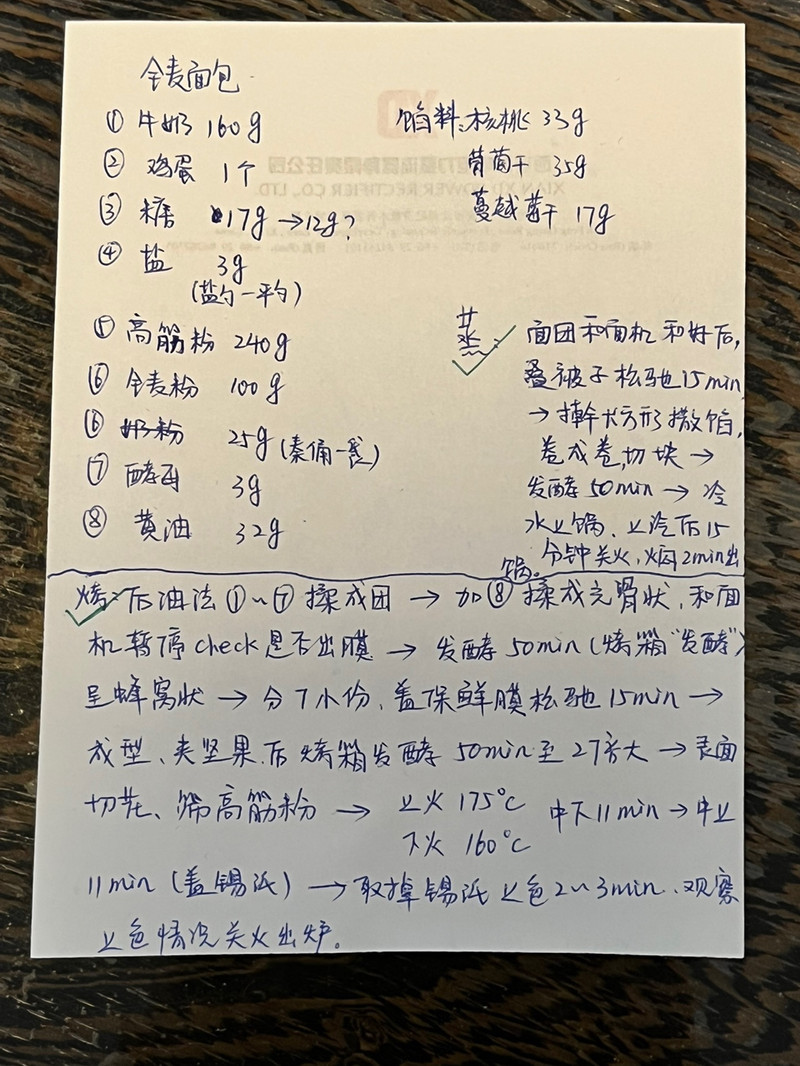 全麦面包
① 牛奶 160g
② 鸡蛋 1个
③ 糖 17g →12g?
④ 盐 3g
(盐勺一平勺)
⑤ 高筋粉 240g
⑥ 全麦粉 100g
⑥ 奶粉 25g (秦俑一袋)
⑦ 酵母 3g
⑧ 黄油 32g
馅料:核桃 33g
葡萄干 35g
蔓越莓干 17g
蒸: 面团和面机和好后,
叠被子松驰15min
→ 擀长方形撒馅,
卷成卷,切块 →
发酵50min → 冷
水上锅、上汽后15
分钟关火,焖2min出
锅。
烤: 后油法 ①~⑦ 揉成团 → 加⑧揉成光滑状,和面
机暂停check是否出膜 → 发酵50min(烤箱"发酵")
呈蜂窝状 → 分7小份、盖保鲜膜松驰15min →
成型、夹坚果.后烤箱发酵50min至2倍大 → 表面
切花、筛高筋粉 → 上火 175°C 中下11min → 中上
下火 160°C
11min (盖锡纸) → 取掉锡纸上色2~3min、观察
上色情况关火出炉。